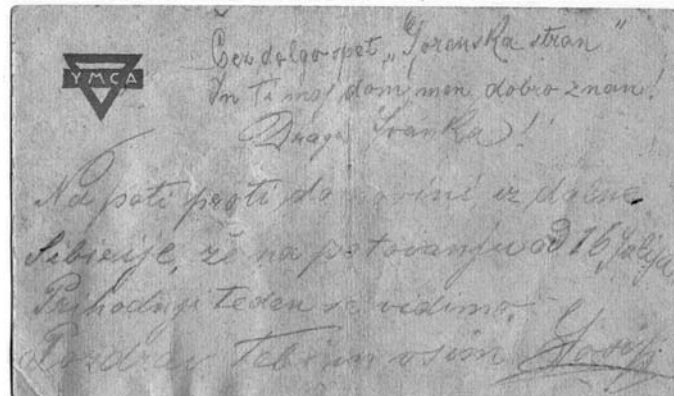 YMCA
Čez dolgo spet „Gorenska stran"
In ti moj dom men dobro znan!
Draga Ivanka!
Na poti proti domovini iz daljne
Sibirije, že na potovanju od 16. Julija
Prihodnji teden se vidimo.
Pozdrav Tebi in vsim